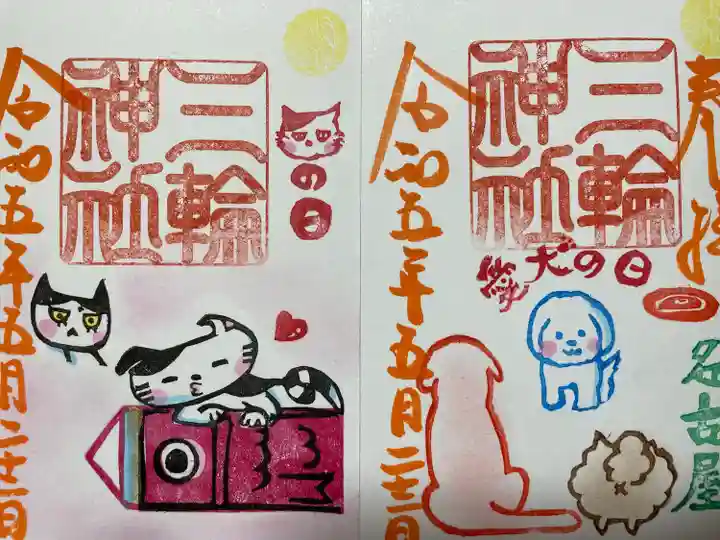 の日
三輪
神社
令和五年五月二十二日
奉拝
名古屋
三輪
神社
愛犬の日
令和五年五月二十二日